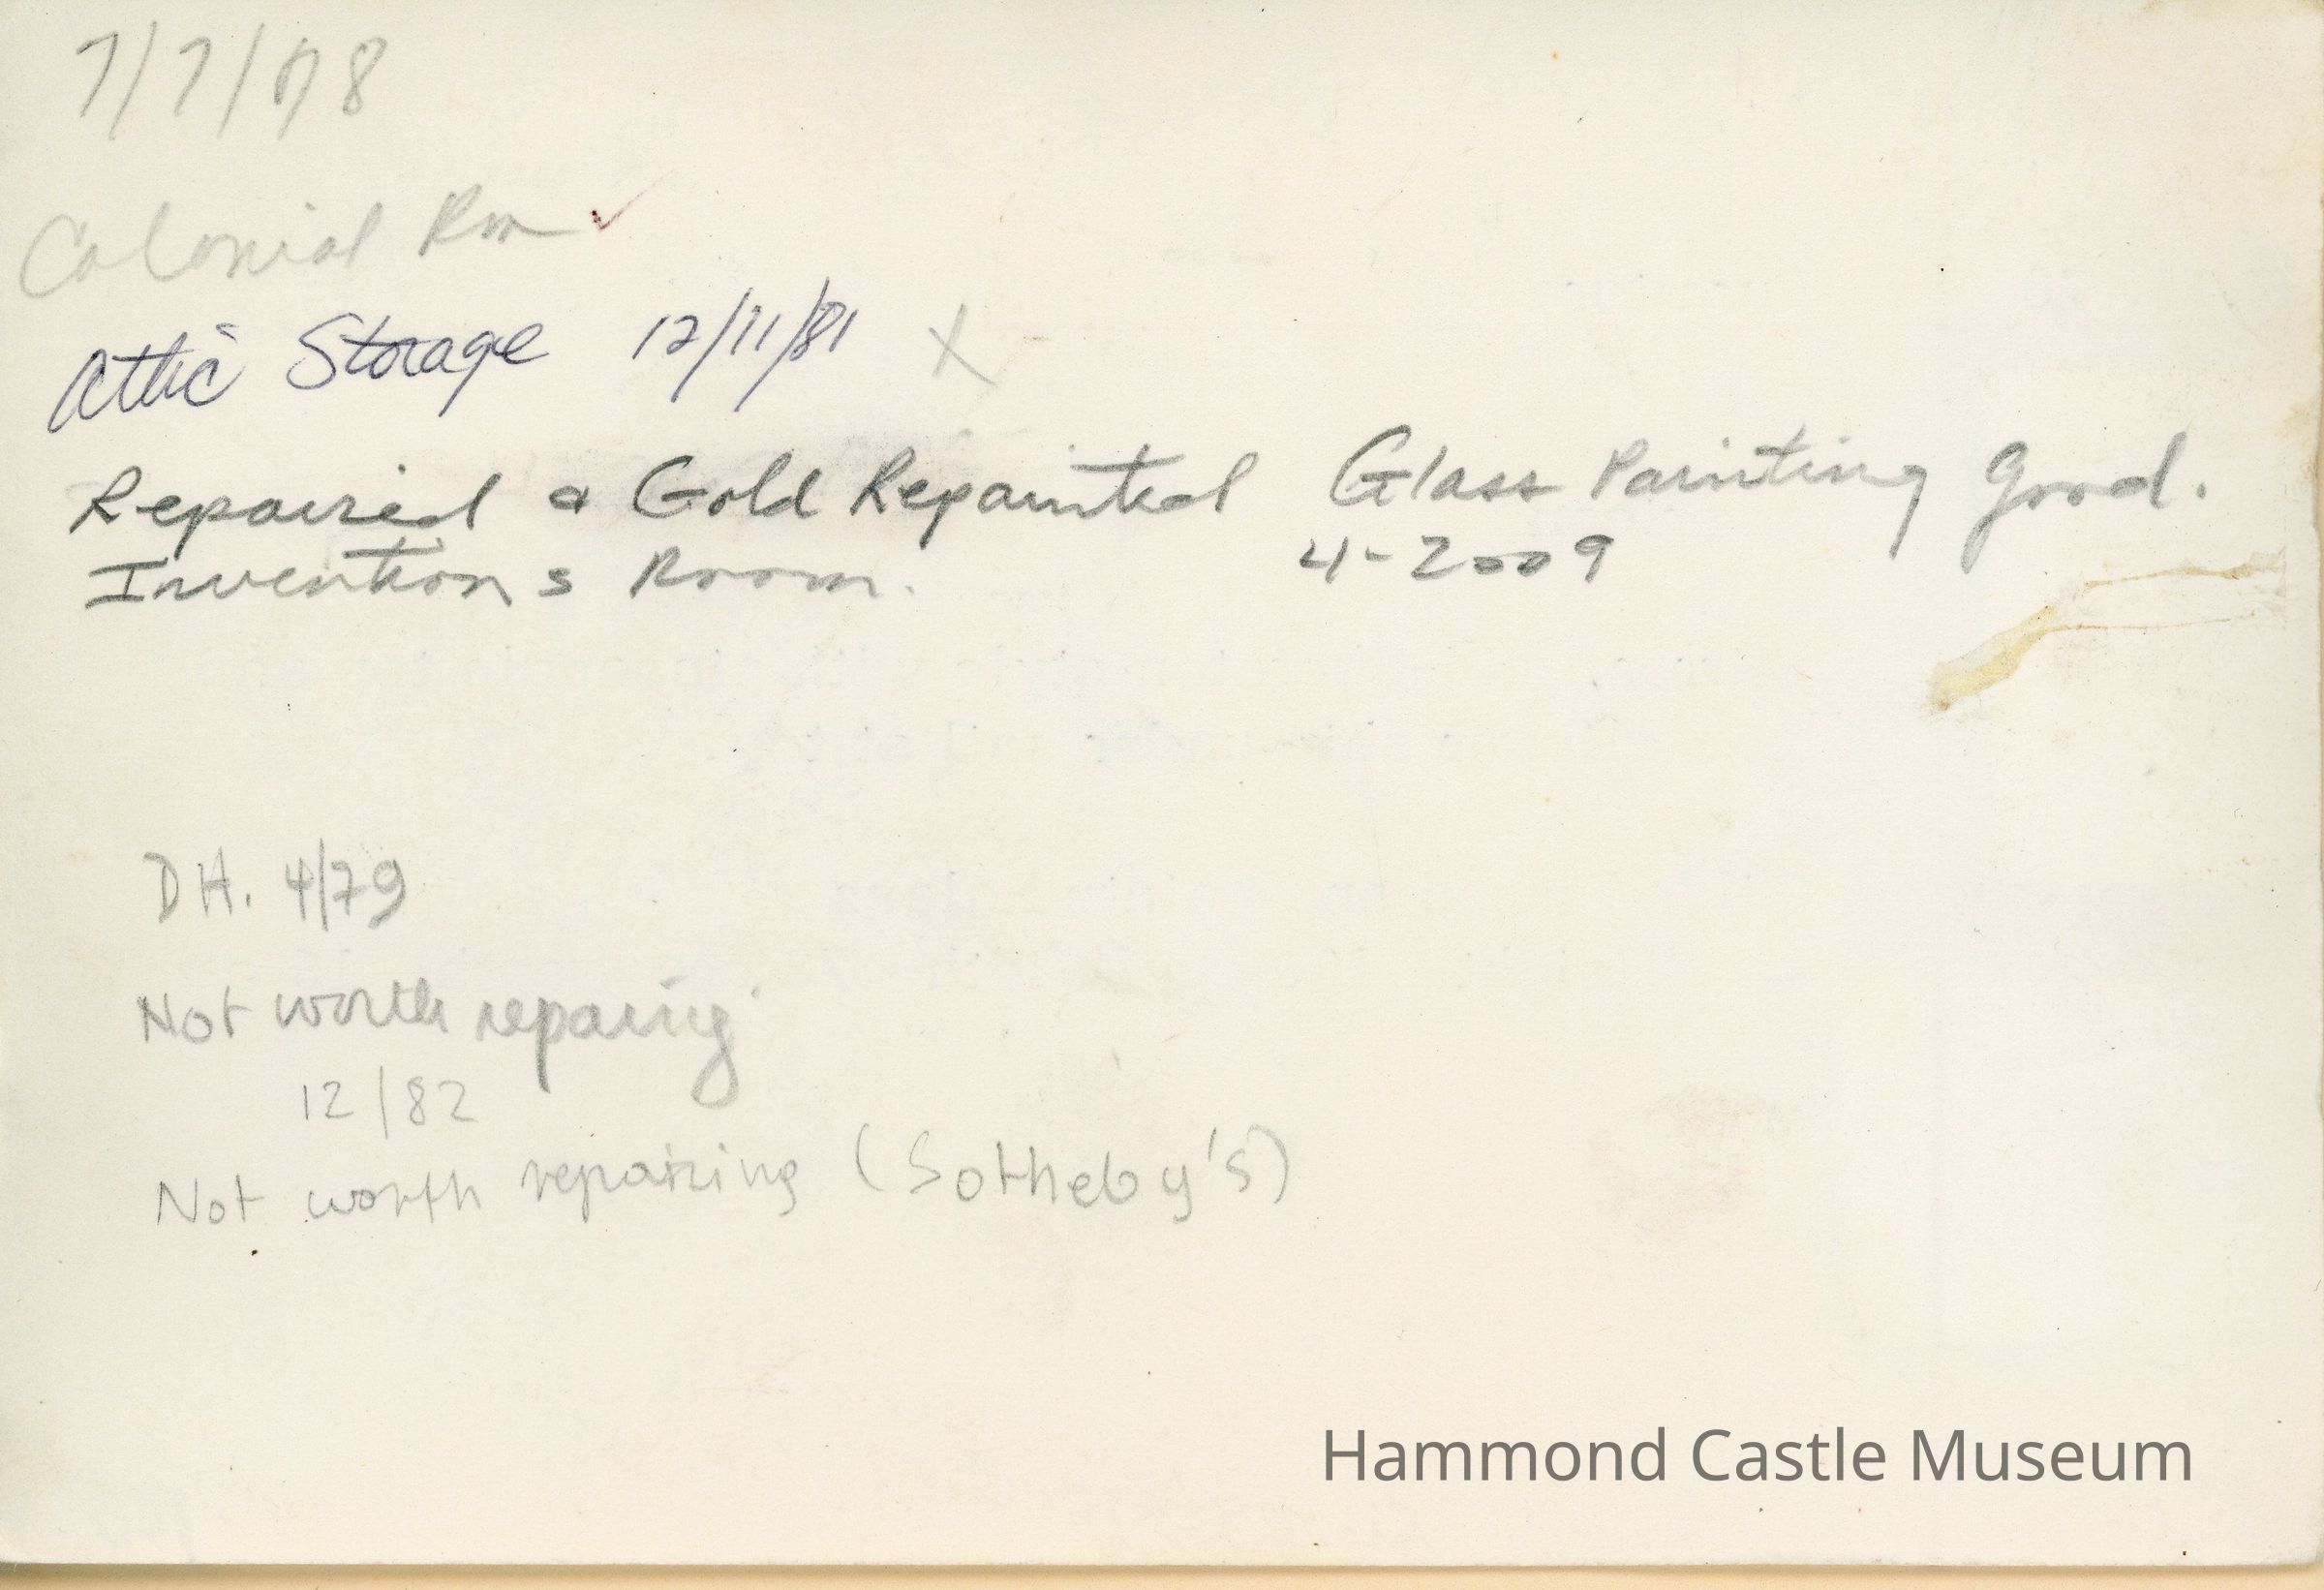 7/7/78
Colonial Rm ✓
Attic Storage 12/11/81 X
Repaired & Gold Repainted Glass Painting Good.
Inventions Room. 4-2009
DH. 4/79
Not worth repairig
12/82
Not worth repairing (Sotheby's)
Hammond Castle Museum